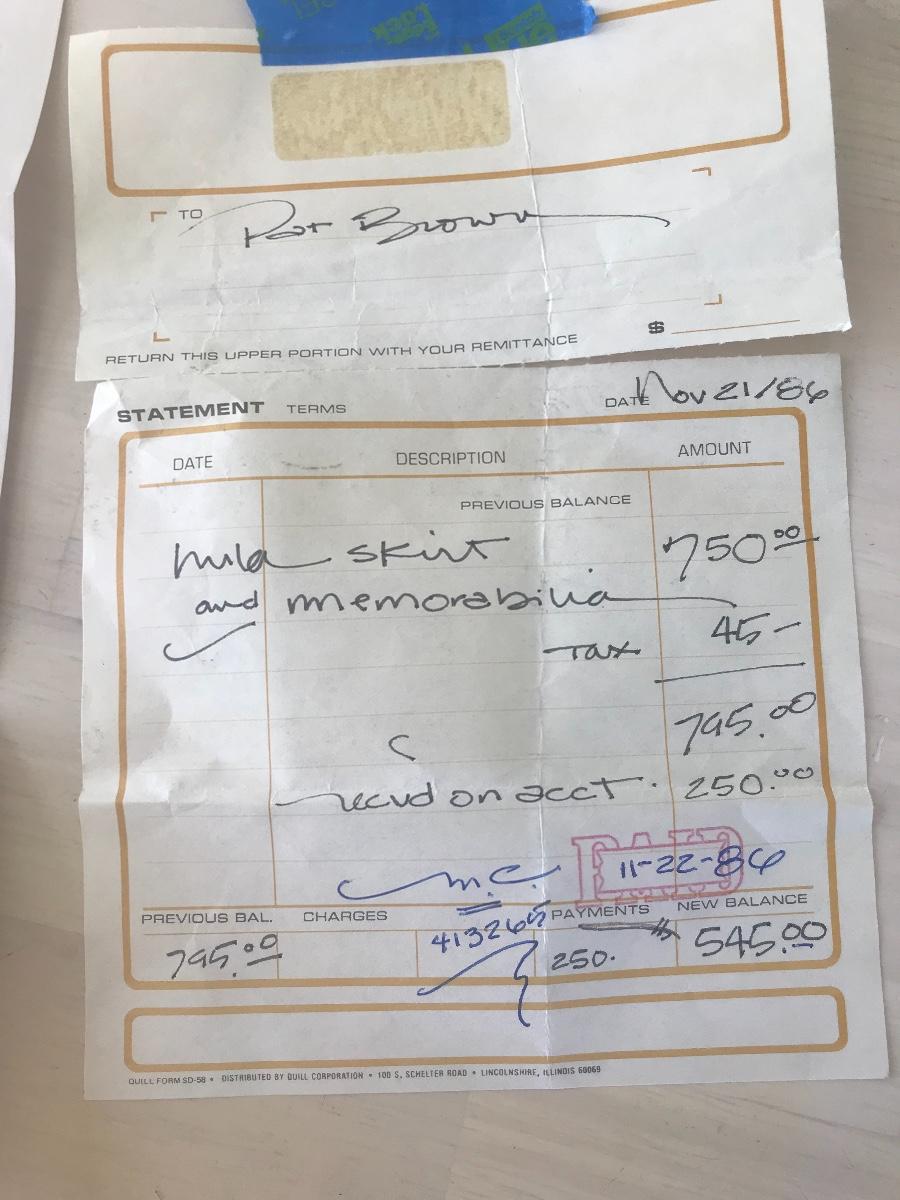 TO Pat Brown
$
RETURN THIS UPPER PORTION WITH YOUR REMITTANCE
STATEMENT TERMS DATE Nov 21/86
DATE DESCRIPTION AMOUNT
PREVIOUS BALANCE
hula skirt 750.00
and memorabilia
Tax 45-
795.00
recvd on acct. 250.00
PAID 11-22-86
M.C.
PREVIOUS BAL. CHARGES PAYMENTS NEW BALANCE
413265
795.00 250. 545.00
QUILL FORM SD-58 • DISTRIBUTED BY QUILL CORPORATION • 100 S. SCHELTER ROAD • LINCOLNSHIRE, ILLINOIS 60069